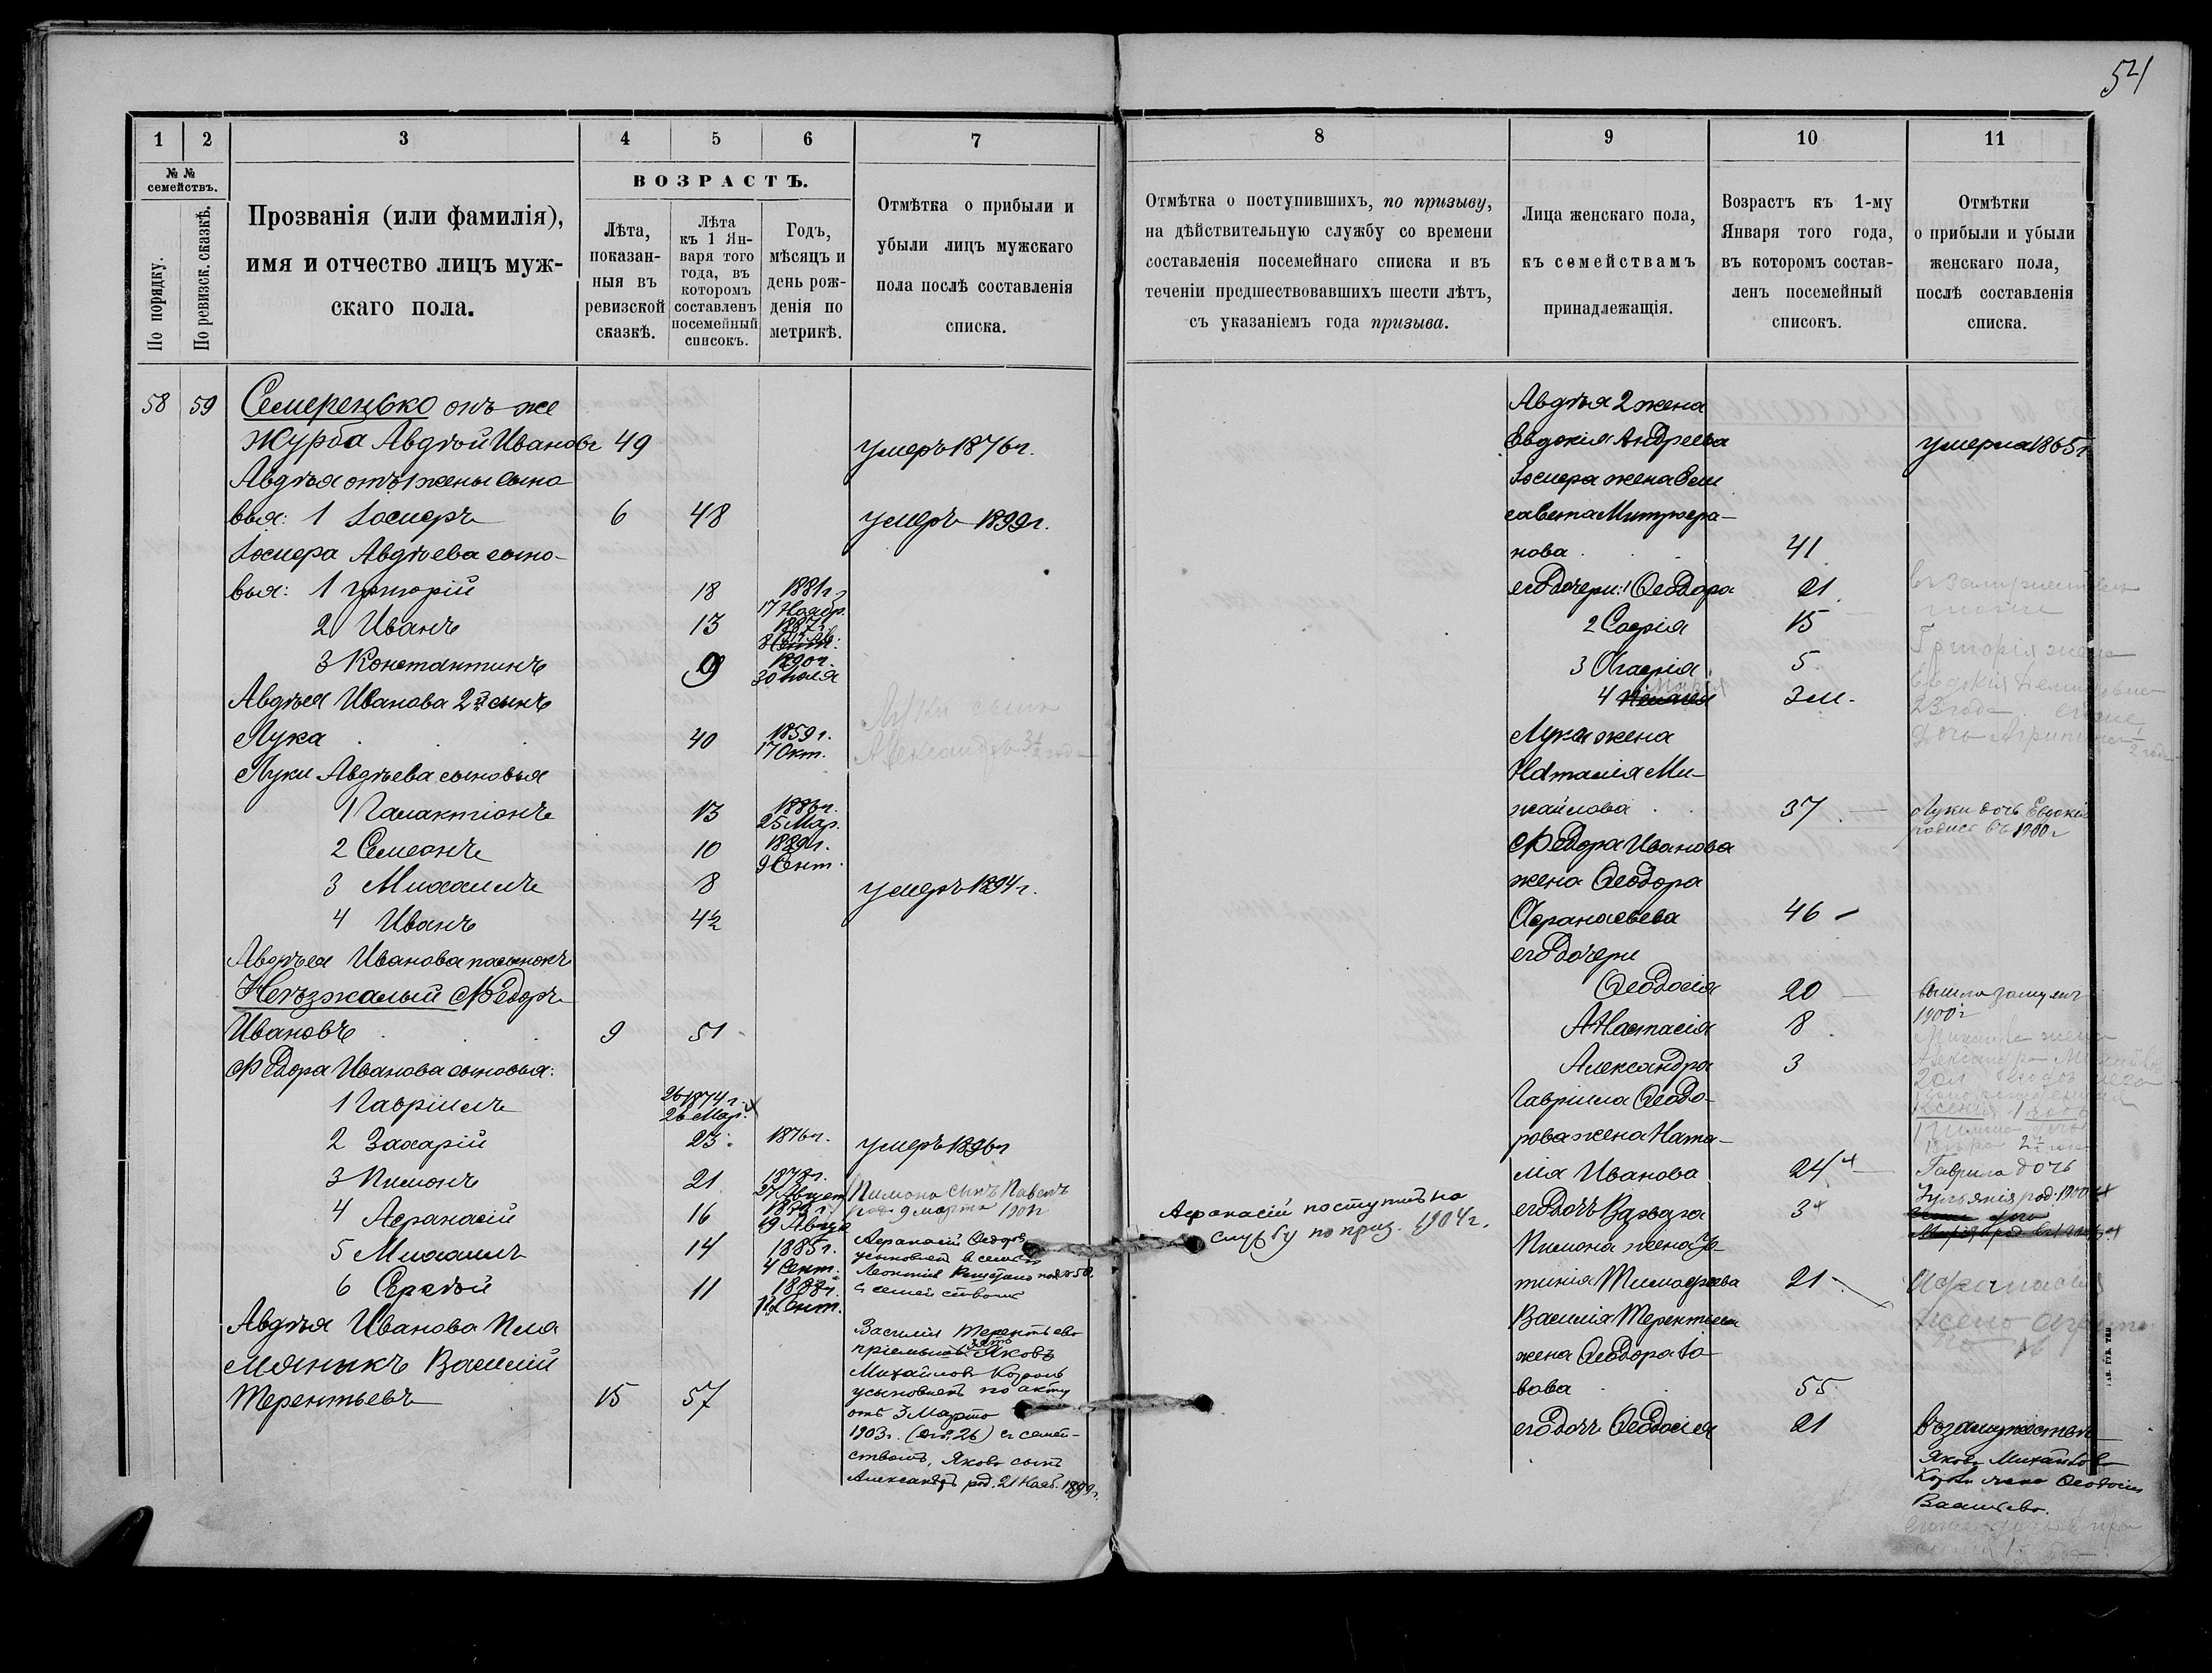 54
1 2 3 4 5 6 7
№ №
семействъ.
По порядку.
По ревизск. сказкѣ.
Прозванія (или фамилія),
имя и отчество лицъ муж-
скаго пола.
ВОЗРАСТЪ.
Лѣта,
показан-
ныя въ
ревизской
сказкѣ.
Лѣта
къ 1 Ян-
варя того
года, въ
которомъ
составленъ
посемейный
списокъ.
Годъ,
мѣсяцъ и
день рож-
денія по
метрикѣ.
Отмѣтка о прибыли и
убыли лицъ мужскаго
пола послѣ составленія
списка.
58 59 Семеренько онъ же
Журба Авдѣй Ивановъ 49 умеръ 1876 г.
Авдѣя отъ 1 жены сыно
вья: 1 Іосифъ 6 48 умеръ 1899 г.
Іосифа Авдѣева сыно-
вья: 1 Григорій 18 1881 г.
17 Ноябр.
2 Иванъ 13 1887 г.
8
3 Константинъ 9 1890 г.
30
Авдѣя Иванова 2й сынъ Луки сынъ
Лука 40 1859 г.
17 Окт. Александръ 3 1/2 года
Луки Авдѣева сыновья
1 Галактіонъ 13 1886 г.
25 Мар.
2 Семеонъ 10 1889 г.
9 Сент.
3 Михаилъ 8 умеръ 1894 г.
4 Иванъ 4 1/2
Авдѣя Иванова пасынокъ
Неѣзжалый Федоръ
Ивановъ 9 51
Федора Иванова сыновья:
1 Гавріилъ 26 1874 г.
26 Мар.
2 Захарій 23 1876 г. умеръ 1896 г
3 Пимонъ 21 1878 г.
27 Август Пимона сынъ Павелъ
род. 9 марта 1901 г
4 Афанасій 16
19 Авгус
5 Михаилъ 14 1885 г.
4 Сент. Афанасій Федоръ
усыновленъ в семью
Леонтія под № 58.
6 Сергѣй 11 1888 г.
Сент. с семейством
Авдѣя Иванова пле
мяныкъ Василій
Терентьевъ 15 57
Василія Терентьева
пріемышъ зять Яковъ
Михайловъ Король
усыновленъ по акту
отъ 3 Марта
1903 г. (26) с семей-
ствомъ, Якова сынъ
Александръ род. 21 Нояб. 1899 г.
8 9 10 11
Отмѣтка о поступившихъ, по призыву,
на дѣйствительную службу со времени
составленія посемейнаго списка и въ
теченіи предшествовавшихъ шести лѣтъ,
съ указаніемъ года призыва.
Лица женскаго пола,
къ семействамъ
принадлежащія.
Возрастъ къ 1-му
Января того года,
въ которомъ состав-
ленъ посемейный
списокъ.
Отмѣтки
о прибыли и убыли
женскаго пола,
послѣ составленія
списка.
Авдѣя 2 жена
Евдокія Андреева умерла 1865 г
Іосифа жена Ели
савета Митрофа-
нова 41
его дочери: 1 Феодора 21 въ замужествѣ
2 Софія 15
3 Агафія 5 Григорія жена
4 Марія 3 м. Евдокія
23 года
Луки жена дочь Агрипина 1/2 года
Наталія Ми-
хайлова 37 Луки дочь Евдокія
родис въ 1900 г
Федора Иванова
жена Феодора
Афанасьева 46
его дочери
Феодосія 20 вышла замужъ
1900 г
Анастасія 8 Михаила жена
Александра 3 Александра
Гавріила Феодо-
рова жена Ната-
лія Иванова 24 Гаврила дочь
Ульянія род. 1900 г
его дочь Варвара 3
Афанасій поступилъ на
службу по приз. 1904 г.
Пимона жена Ус-
тинія Тимофеева 21 Афанасія
жена
Василія Терентьева
жена Феодора Іо
вова 55
его дочь Феодосія 21 въ замужествѣ
Якова Михайлова
Король жена Феодосія
Васильева.